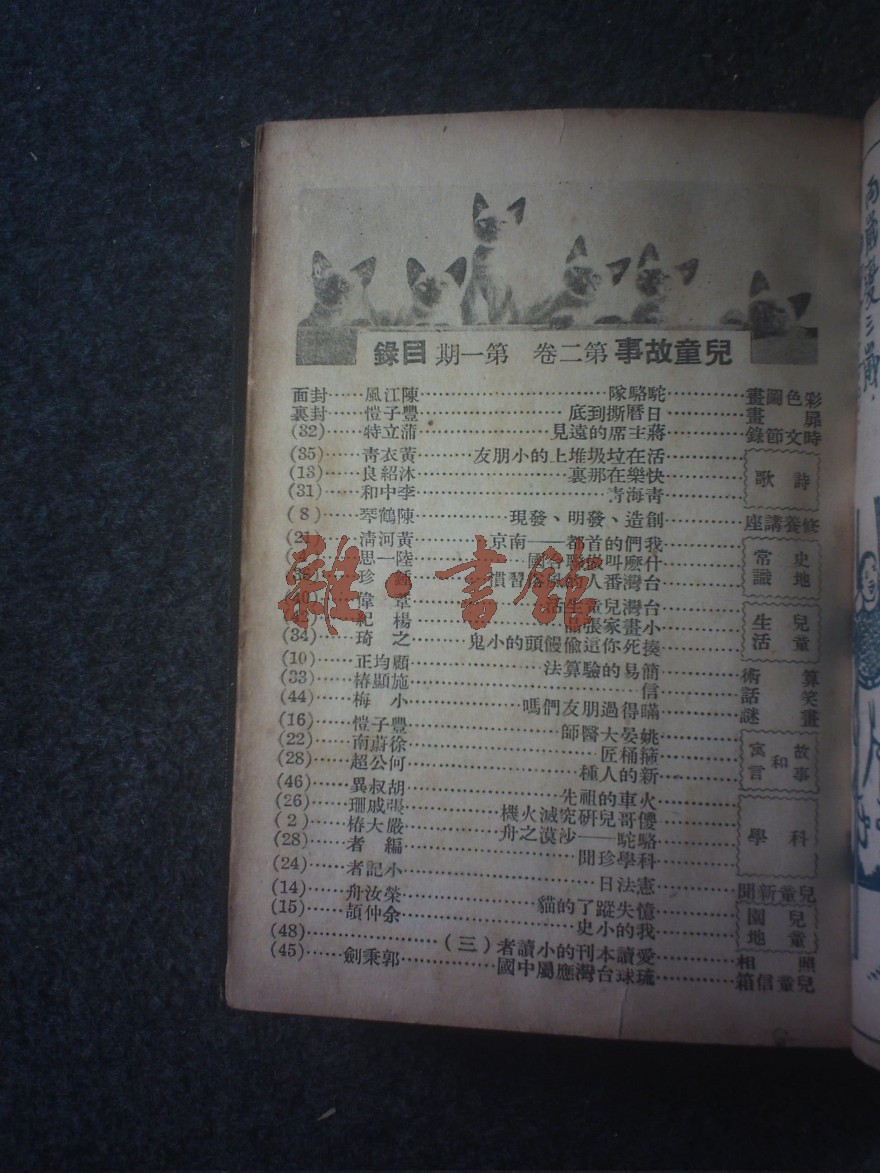 兒童故事第二卷 第一期目錄
彩色圖畫……駝駱隊……陳江風……封面
扉畫……日曆撕到底……豐子愷……封裏
時文節錄……蔣主席的遠見……蒲立特……(32)
詩歌
活在垃圾堆上的小朋友……黃衣青……(35)
快樂在那裏……沐紹良……(13)
青海青……李中和……(31)
修養講座……創造、發明、發現……陳鶴琴……(8)
史地常識
我們的首都——南京……黃河清
什麽叫做聯合國……陸一思
台灣番人的風俗習慣……鍾珍
兒童生活
台灣兒童生活……韋偉……(40)
小畫家張……楊紀……(42)
揍死你這偷饅頭的小鬼……之琦……(34)
算術……簡易的驗算法……顧均正……(10)
笑話……信……施顯椿……(33)
畫謎……瞞得過朋友們嗎……小梅……(44)
故事和寓言
姚晏大醫師……豐子愷……(16)
箍桶匠……徐蔚南……(22)
新的人種……何公超……(28)
科學
火車的祖先……胡叔異……(46)
儍哥兒研究滅火機……張戚珊……(26)
駱駝——沙漠之舟……嚴大椿……(2)
科學珍聞……編者……(28)
兒童新聞……憲法日……小記者……(24)
兒童園地
憶失蹤了的貓……榮汝舟……(14)
我的小史……余仲頡……(15)
照相……愛讀本刊的小讀者(三)……(48)
兒童信箱……琉球台灣應屬中國……郭秉劍……(45)
雜·書館